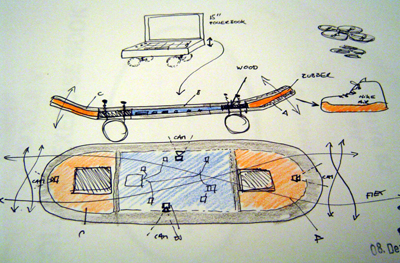 15"
POWERBOOK
WOOD
RUBBER
C
B
A
NIKE
CAM
CAM
CAM
CAM
FEET
C
A
08. De